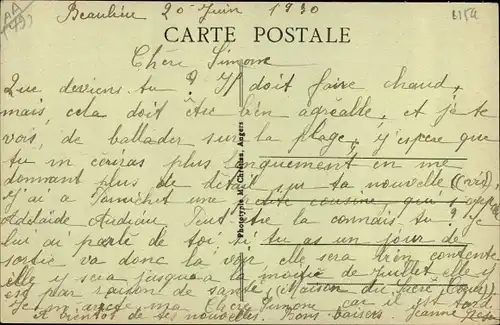 Beaulieu 20 Juin 1930
8154
CARTE POSTALE
Chère Simone
Que deviens tu ? Il doit faire chaud,
mais cela doit être bien agréable, et je te
vois de ballader sur la plage, j'y espère que
tu m'ecriras plus longuement en me
donnant plus de detail sur ta nouvelle
J'ai a une petite cousine qui s'appelle
Adélaïde Audiau Peut être la connais tu ? Je
lui ai parlé de toi, si tu as un jour de
sortie va donc la voir elle sera très contente
elle y sera jusqua a la moitié de Juillet elle y
est par raison de santé (Maison du Sacré Coeur)
Je m'arrête ma Chère Simone car il est tard
A bientot de tes nouvelles. Bons baisers. Jeanne
Phototypie M. Chrétien, Angers